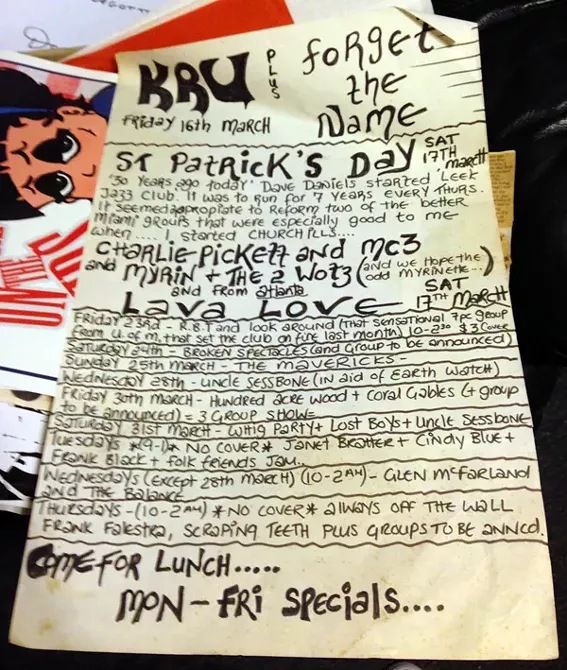 KRU PLUS FORGET the NAME
FRIDAY 16th MARCH
ST PATRICK'S DAY SAT 17TH MARCH
'30 YEARS ago today' DAVE DANIELS started 'LEEK
JAZZ CLUB. It was to RUN for 7 YEARS EVERY THURS.
It seemed appropiate to REFORM two of the better
Miami groups that were especially good to me
when.... I started CHURCHILLS....
CHARLIE PICKETT and MC3
and MYRIN + THE 2 WOTZ (and we Hope the odd MYRINETTE...)
and from atlanta
LAVA LOVE SAT 17TH MARCH
FRIDAY 23rd - R.B.T and look around (THAT sensational 7pc group
from U. of M. that set the club on fire last month) 10-2:30 $3 COVER
SATURDAY 24th - BROKEN SPECTACLES (and Group to be announced)
SUNDAY 25th MARCH - THE MAVERICKS -
WEDNESDAY 28th - UNCLE SESSBONE (IN aid of EARTH WATCH)
FRIDAY 30th MARCH - HUNDRED ACRE WOOD + CORAL GABLES (+ group
to be announced) = 3 GROUP SHOW=
SATURDAY 31st MARCH - WHIG PARTY + LOST BOYS + UNCLE SESSBONE
TUESDAYS *(9-1)* NO COVER * JANET BRATTER + CINDY BLUE +
FRANK BLACK + folk friends JAM..
WEDNESDAYS (EXCEPT 28th MARCH) (10-2AM) - GLEN McFARLAND
and THE BALANCE
THURSDAYS - (10-2AM) *NO COVER* always OFF THE WALL
FRANK FALESTRA, SCRAPING TEETH PLUS GROUPS TO BE ANNCD.
COME FOR LUNCH.....
MON - FRI SPECIALS....